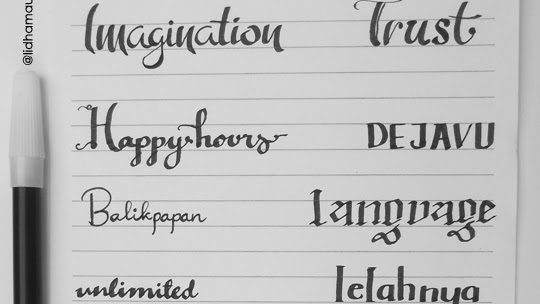 @lidhamau
Imagination Trust
Happy hours DEJAVU
Balikpapan Language
unlimited lelahnya